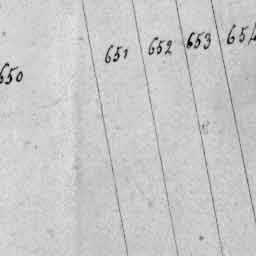 650 651 652 653 654